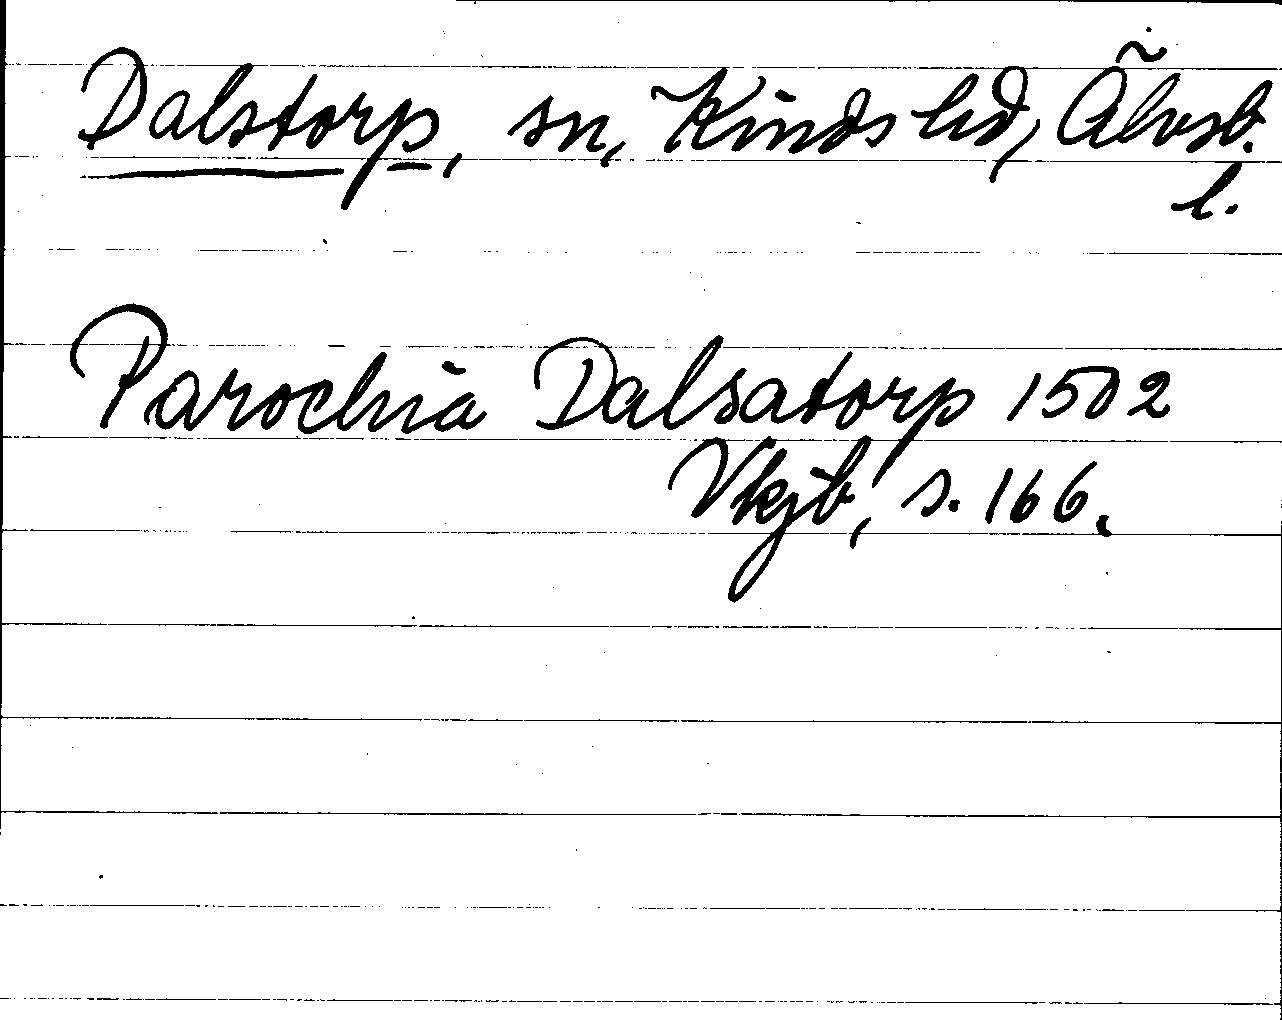 Dalstorp, sn, Kinds hd, Älvsb.
l.
Parochia Dalsatorp 1502
Vkjb, s. 166.